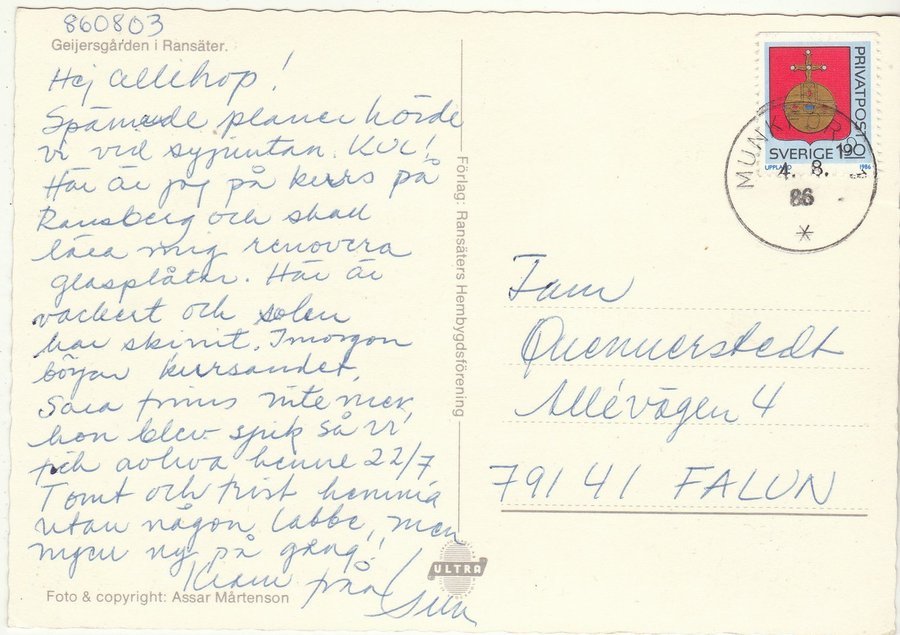 860803
Geijersgården i Ransäter.
Hej allihop!
Spännande planer hörde
vi vid syjuntan. KUL!
Här är jag på kurs på
Ransberg och skall
lära mig renovera
glasplåtar. Här är
vackert och solen
har skinit. Imorgon
börjar kursandet.
Sara finns inte mer,
hon blev sjuk så vi
fick avliva henne 22/7
Tomt och trist hemma
utan någon labbe, men
ny på gång!
Kram från
Förlag: Ransäters Hembygdsförening
ULTRA
Foto & copyright: Assar Mårtenson
PRIVATPOST
SVERIGE 1.90
UPPLAND 1986
4. 8.
86
Fam
Quennerstedt
Allévägen 4
791 41 FALUN